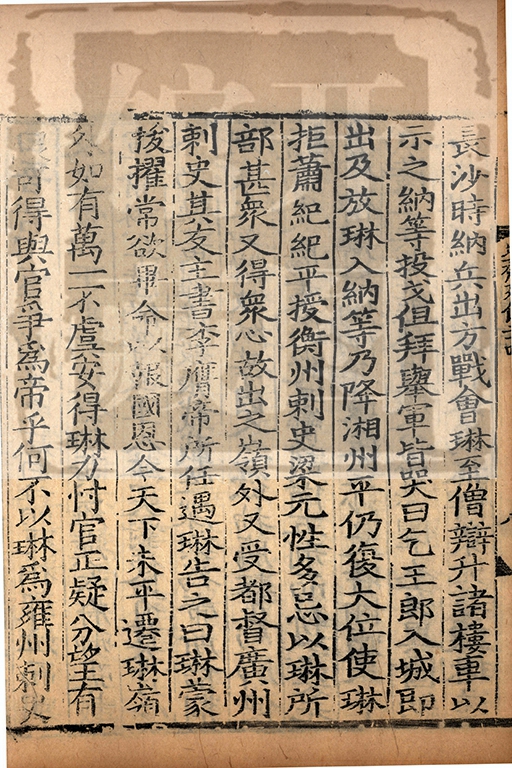 長沙時納兵出方戰會琳至僧辯升諸樓車以
示之納等投戈俱拜舉軍皆哭曰乞王郎入城即
出及放琳入納等乃降湘州平仍復大位使琳
拒蕭紀紀平授衡州刺史梁元性多忌以琳所
部甚衆又得衆心故出之嶺外又受都督廣州
刺史其友主書李膺帝所任遇琳告之曰琳蒙
拔擢常欲畢命以報國恩今天下未平遷琳嶺
外如有萬一不虞安得琳力忖官正疑分望有
可得與官爭爲帝乎何不以琳爲雍州刺史